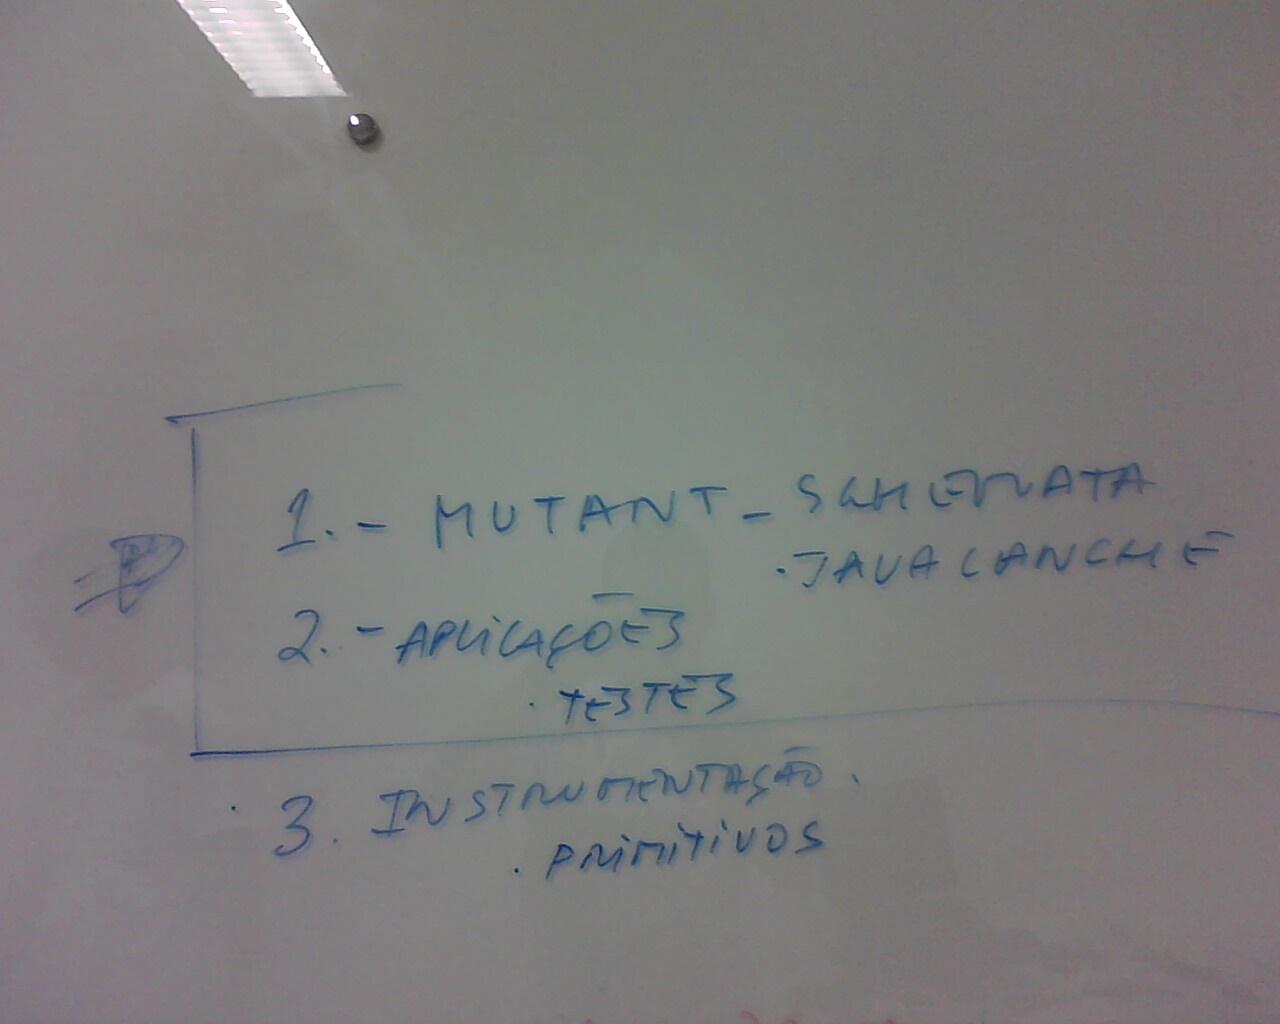 1. - MUTANT - SCHEMATA
. JAVALANCHE
2. - APLICAÇÕES
. TESTES
3. INSTRUMENTAÇÃO.
. PRIMITIVOS